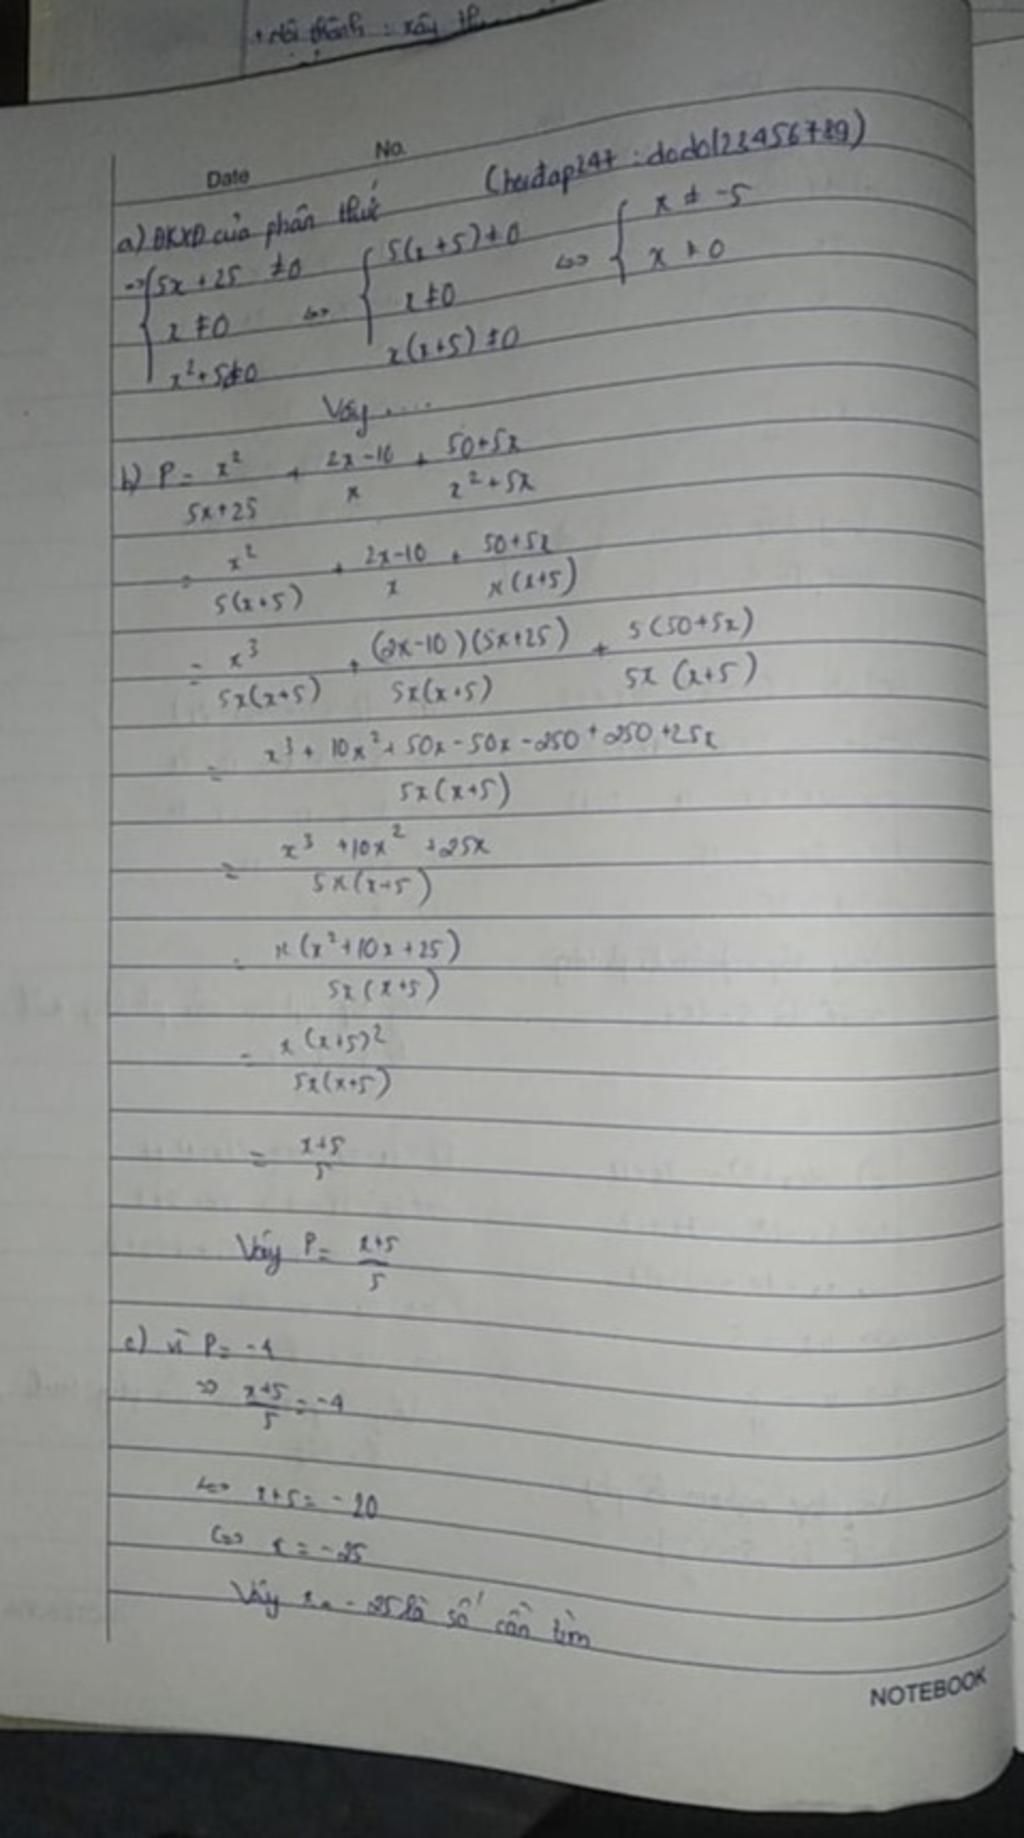 + Nội thành : xây
Date No.
(hoidap247 : dodo123456789)
a) ĐKXĐ của phân thức
=> { 5x + 25 ≠ 0 <=> { 5(x+5) ≠ 0 <=> { x ≠ -5
x ≠ 0 x ≠ 0 x ≠ 0
x² + 5 ≠ 0 x(x+5) ≠ 0
Vậy ....
b) P = x²/(5x+25) + (2x-10)/x + (50+5x)/(x²+5x)
= x²/(5(x+5)) + (2x-10)/x + (50+5x)/(x(x+5))
= x³/(5x(x+5)) + (2x-10)(5x+25)/(5x(x+5)) + 5(50+5x)/(5x(x+5))
= (x³ + 10x² + 50x - 50x - 250 + 250 + 25x)/(5x(x+5))
= (x³ + 10x² + 25x)/(5x(x+5))
= x(x²+10x+25)/(5x(x+5))
= x(x+5)²/(5x(x+5))
= (x+5)/5
Vậy P = (x+5)/5
c) vì P = -4
=> (x+5)/5 = -4
<=> x+5 = -20
<=> x = -25
Vậy x = -25 là số cần tìm
NOTEBOOK